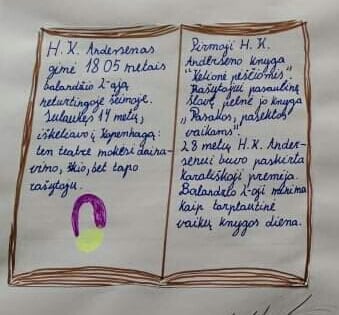 H. K. Andersenas
gimė 1805 metais
balandžio 2-ąją
neturtingoje šeimoje.
Sulaukęs 14 metų,
iškeliavo į Kopenhagą:
ten teatre mokėsi daina-
vimo, šokio, bet tapo
rašytoju.
Pirmoji H. K.
Anderseno knyga
"Kelionė pėsčiomis".
Rašytojui pasaulinę
šlovę pelnė jo knyga
"Pasakos, pasektos
vaikams".
28 metų H. K. Ander-
senui buvo paskirta
karališkoji premija.
Balandžio 2-oji minima
kaip tarptautinė
vaikų knygos diena.